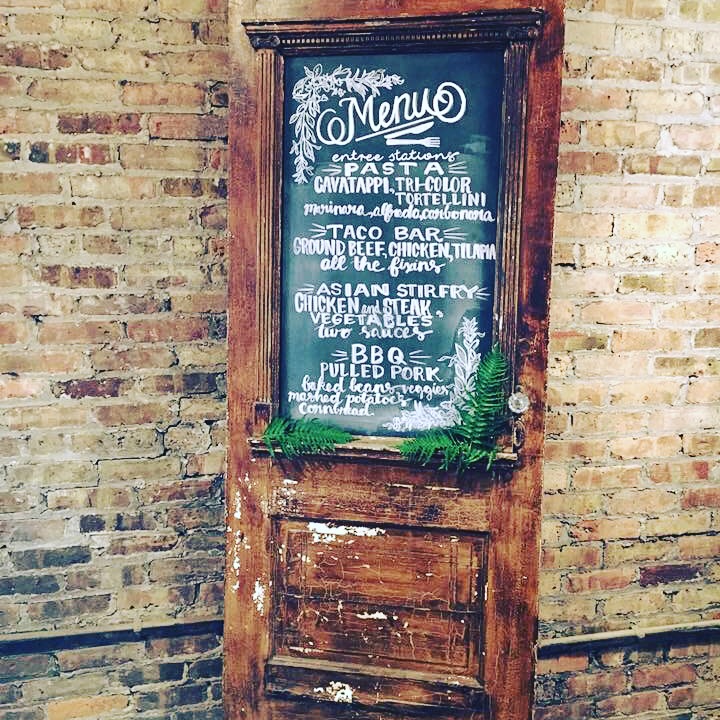 Menu
entree stations
PASTA
CAVATAPPI, TRI-COLOR
TORTELLINI
marinara, alfredo, carbonara
TACO BAR
GROUND BEEF, CHICKEN, TILAPIA
all the fixins
ASIAN STIRFRY
CHICKEN and STEAK,
VEGETABLES,
two sauces
BBQ
PULLED PORK
baked beans, veggies
mashed potatoes
cornbread